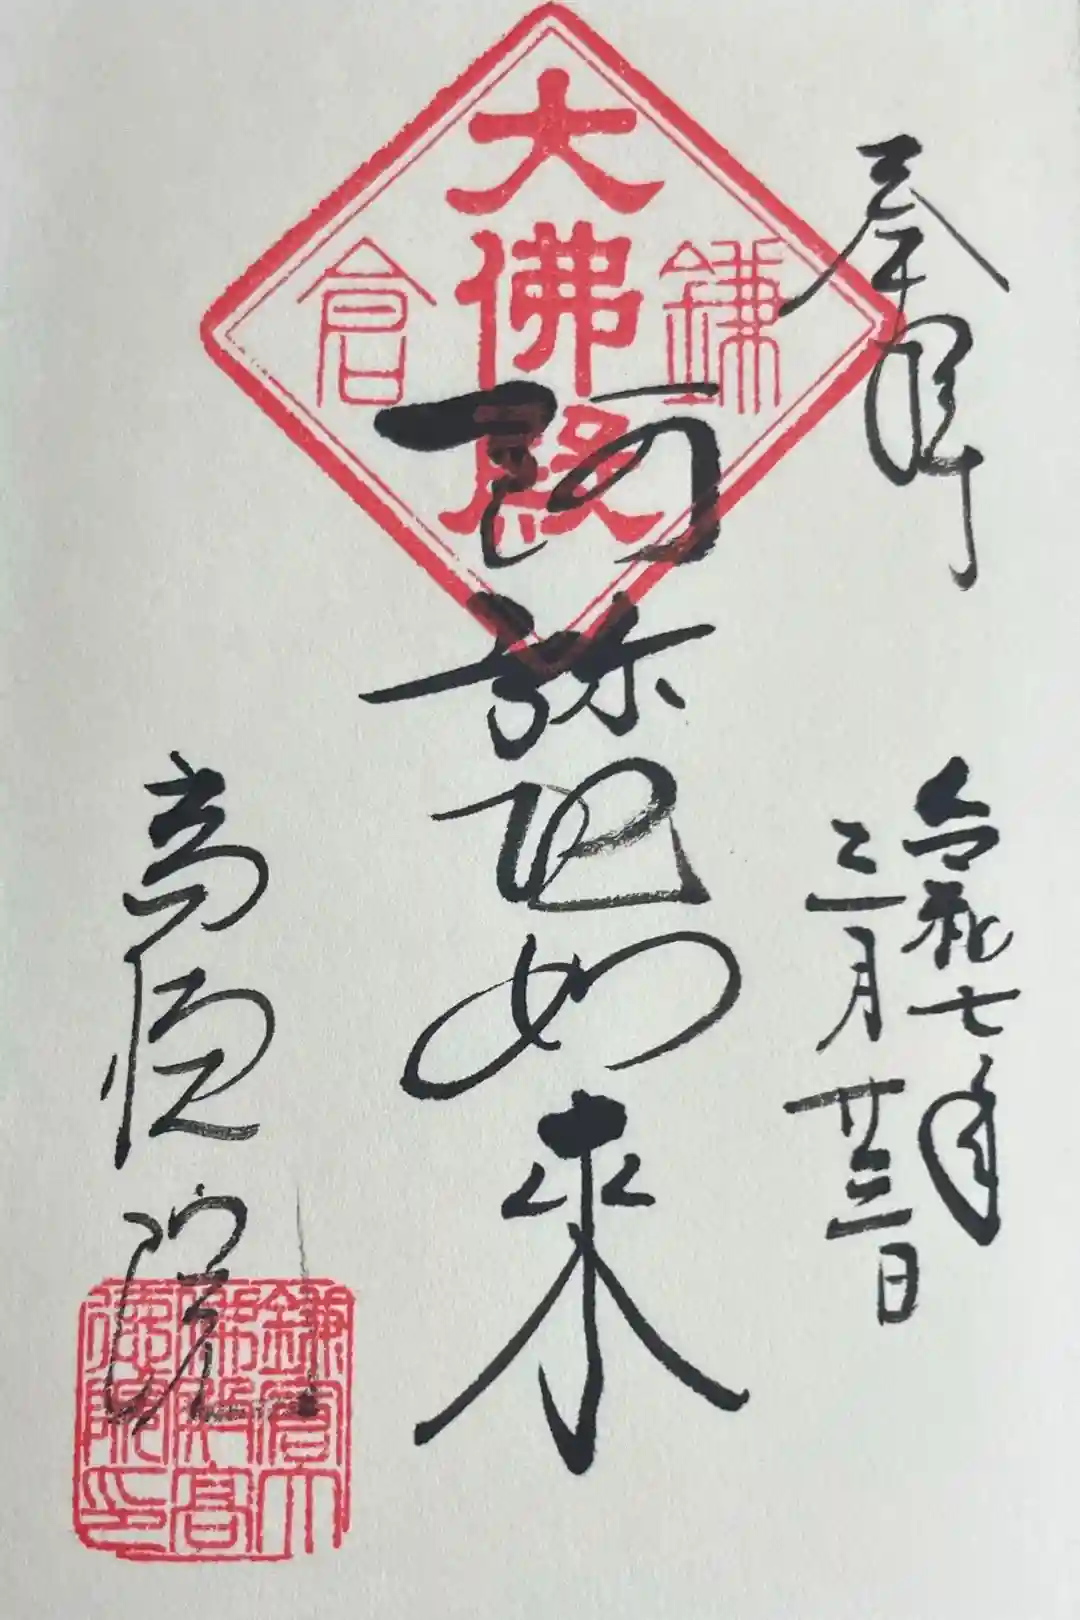 奉拝
令和七年
三月廿三日
鎌倉
大佛殿
阿弥陀如来
高徳院
鎌倉大
佛殿高
徳院印